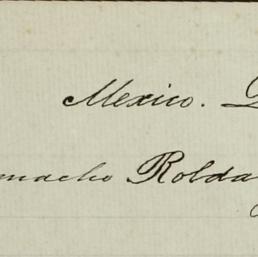 Mexico.
macho Rolda